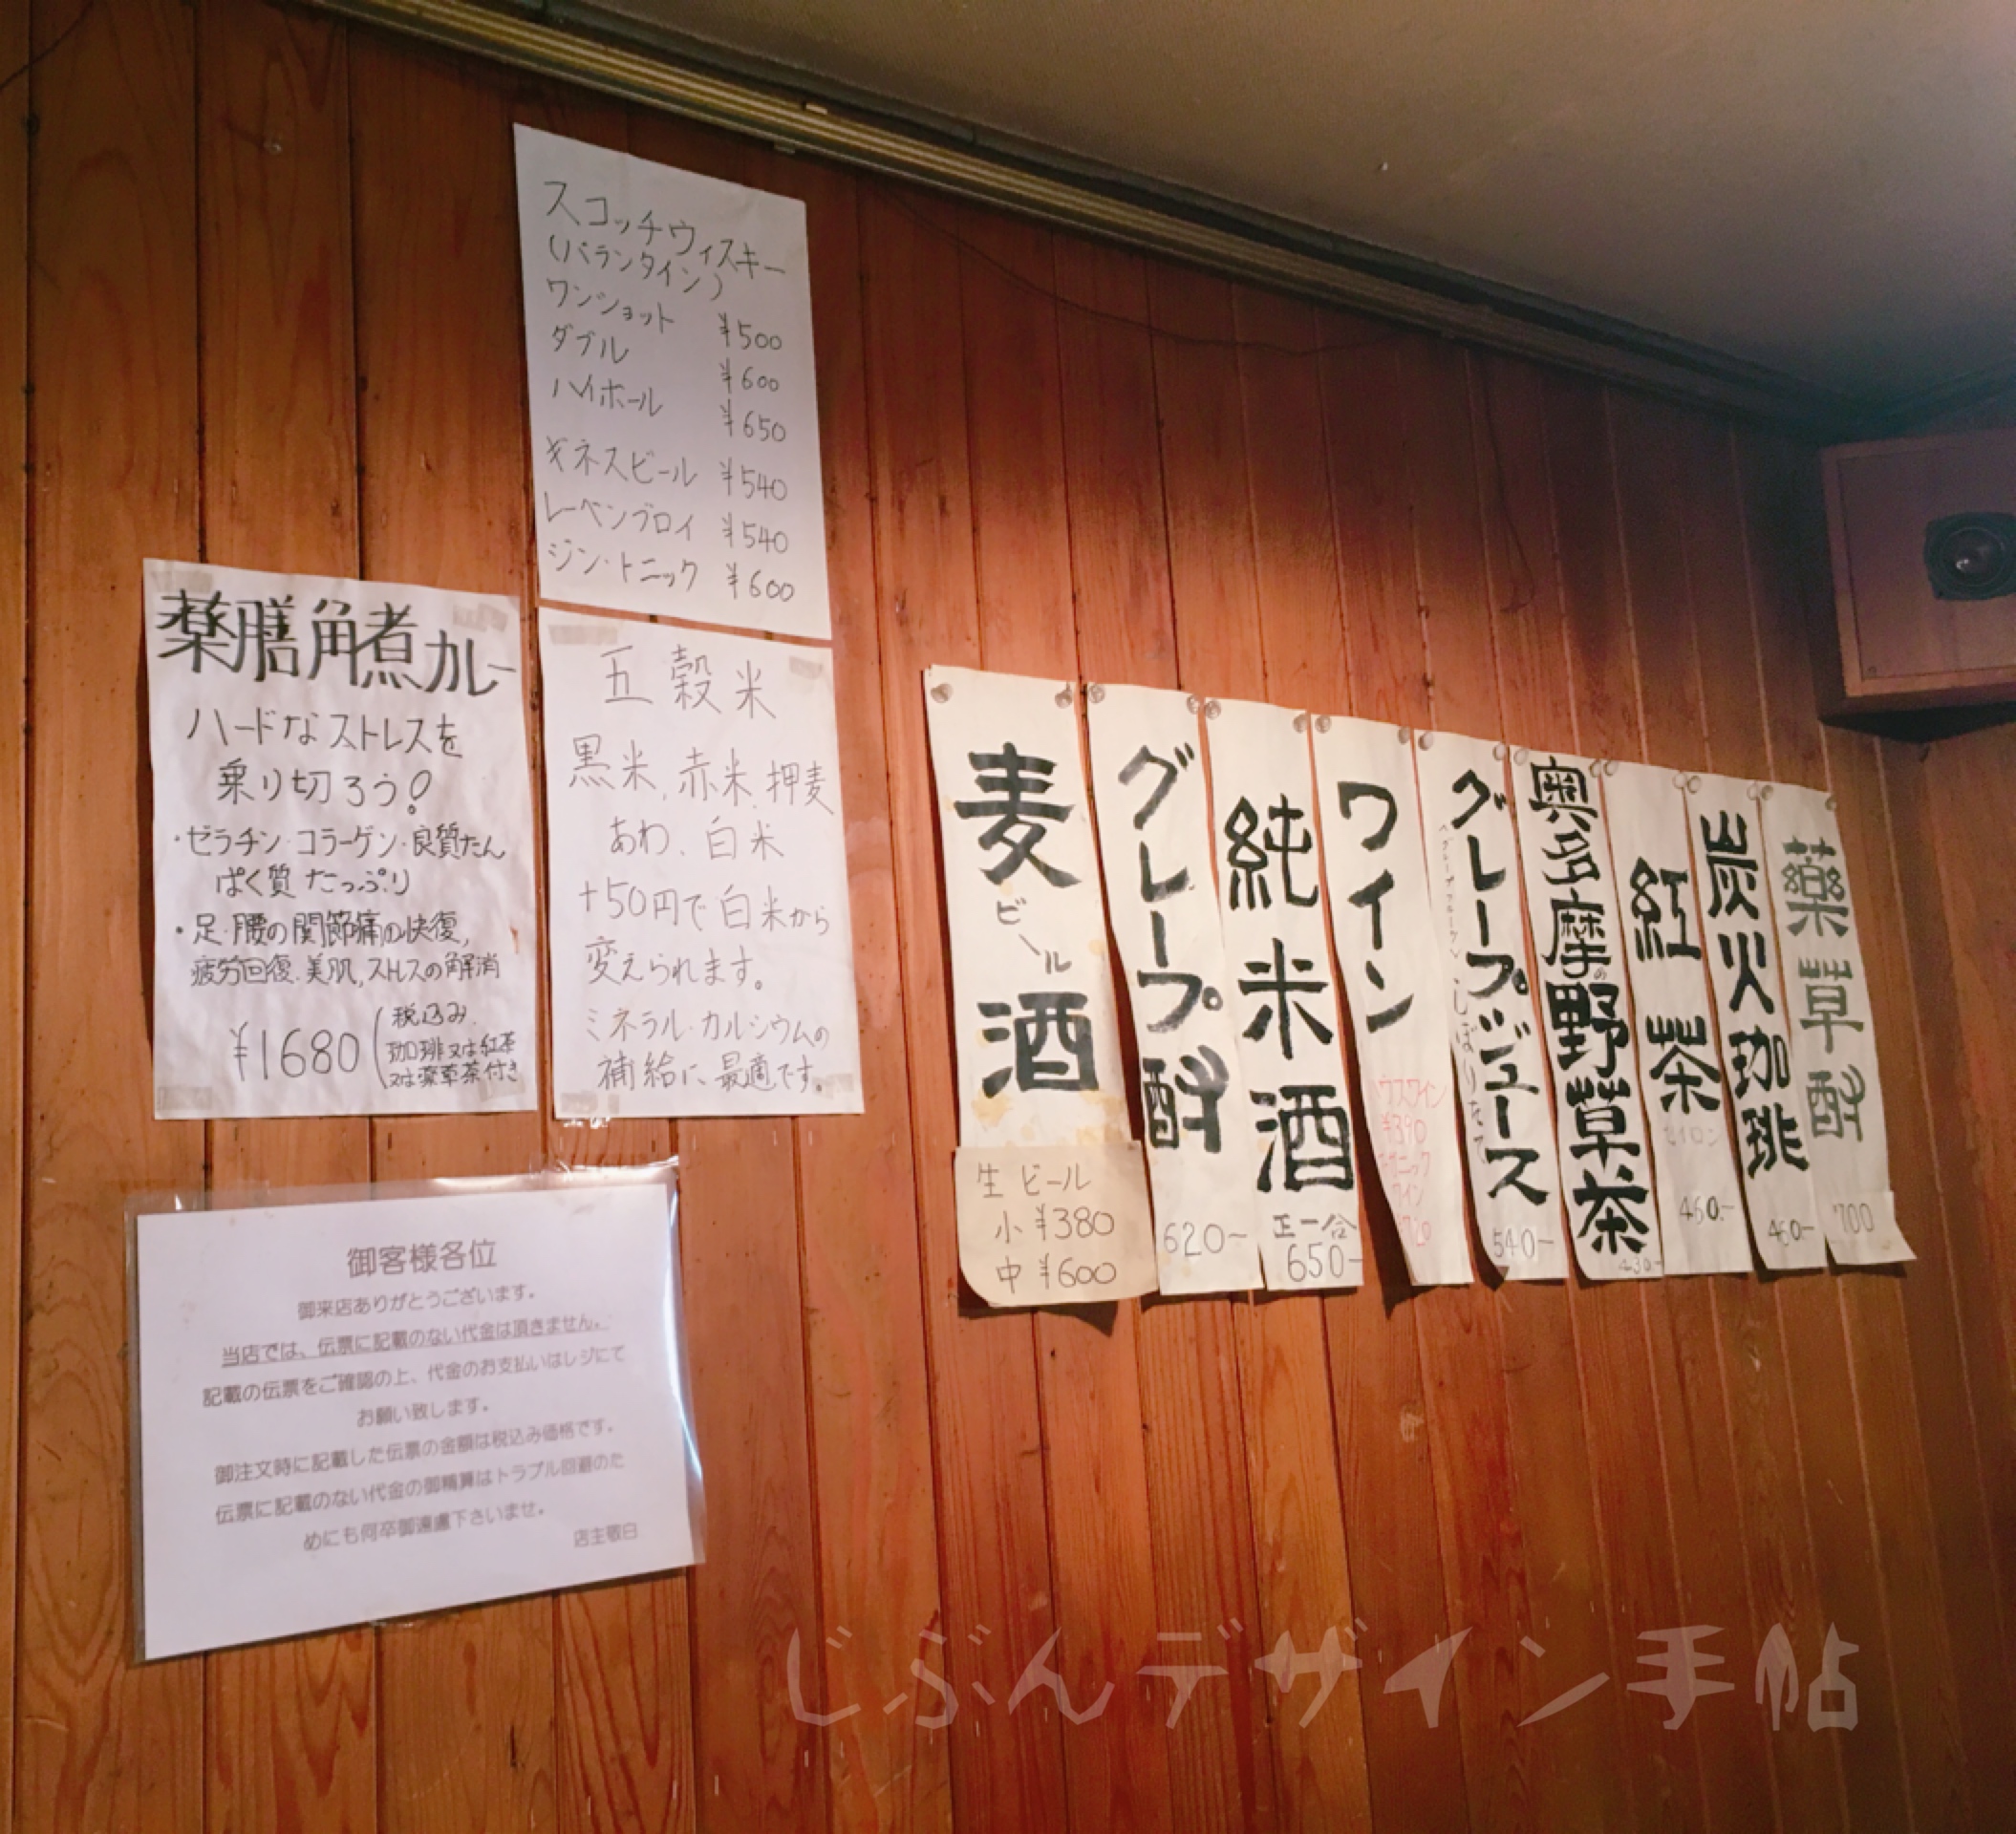 スコッチウィスキー
(バランタイン)
ワンショット ¥500
ダブル ¥600
ハイホール ¥650
ギネスビール ¥540
レーベンブロイ ¥540
ジン・トニック ¥600
薬膳角煮カレー
ハードなストレスを
乗り切ろう!
・ゼラチン・コラーゲン・良質たん
ぱく質 たっぷり
・足・腰の関節痛の快復,
疲労回復、美肌,ストレスの解消
¥1680(税込み.
珈琲又は紅茶
又は薬草茶付き
五穀米
黒米,赤米,押麦
あわ、白米
+50円で白米から
変えられます。
ミネラル・カルシウムの
補給に、最適です。
御客様各位
御来店ありがとうございます。
当店では、伝票に記載のない代金は頂きません。
記載の伝票をご確認の上、代金のお支払いはレジにて
お願い致します。
御注文時に記載した伝票の金額は税込み価格です。
伝票に記載のない代金の御精算はトラブル回避のた
めにも何卒御遠慮下さいませ。
店主敬白
麦酒
ビール
生ビール
小 ¥380
中 ¥600
グレープ酎
620-
純米酒
正一合
650-
ワイン
ハウスワイン
¥390
オーガニック
ワイン
グレープジュース
しぼりたて
540-
奥多摩の野草茶
430-
紅茶
セイロン
460.-
炭火珈琲
460-
薬草酎
700
じぶんデザイン手帖